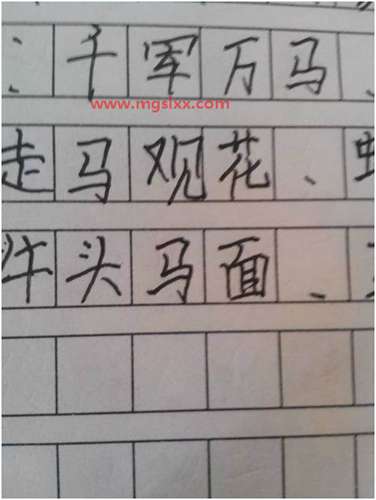 ：千军万马、
www.mgslxx.com
走马观花、
牛头马面、